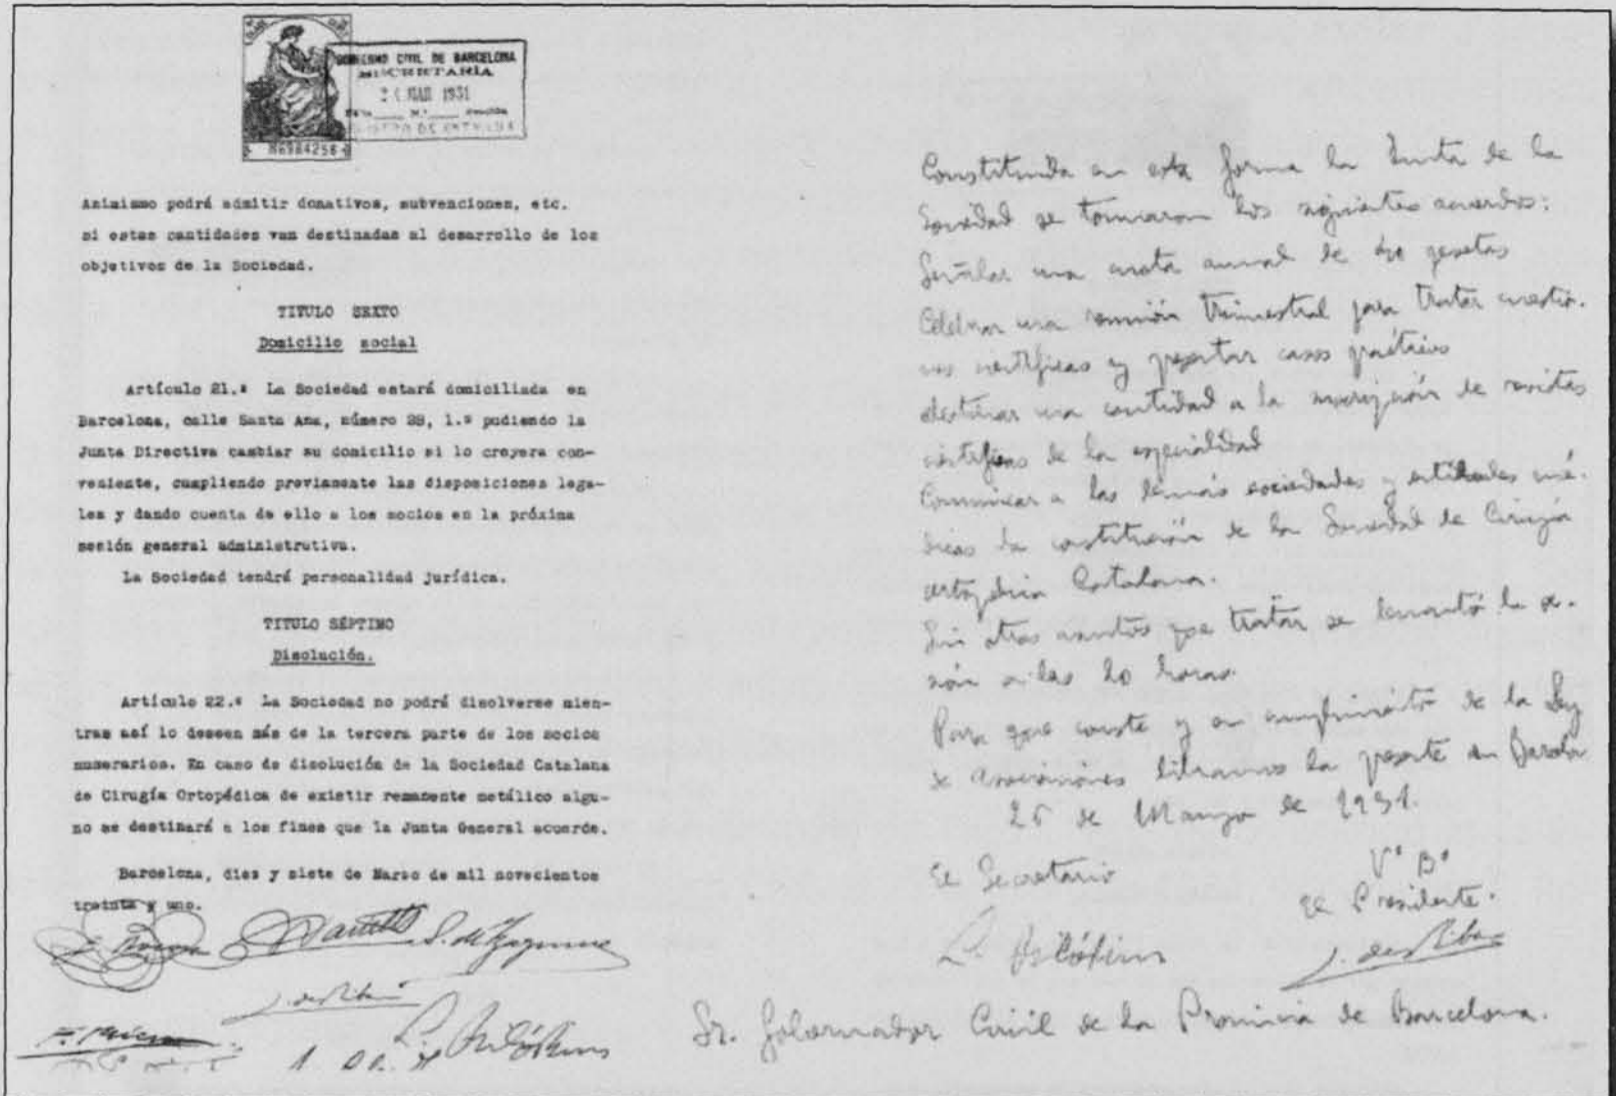 GOBIERNO CIVIL DE BARCELONA
SECRETARÍA
MAR 1931
N.º
REGISTRO DE ENTRADA
M6984258
Asimismo podrá admitir donativos, subvenciones, etc.
si estas cantidades van destinadas al desarrollo de los
objetivos de la Sociedad.
TITULO SEXTO
Domicilio social
Artículo 21.º La Sociedad estará domiciliada en
Barcelona, calle Santa Ana, número 28, 1.º pudiendo la
Junta Directiva cambiar su domicilio si lo creyera con-
veniente, cumpliendo previamente las disposiciones lega-
les y dando cuenta de ello a los socios en la próxima
sesión general administrativa.
La Sociedad tendrá personalidad jurídica.
TITULO SÉPTIMO
Disolución.
Artículo 22.º La Sociedad no podrá disolverse mien-
tras así lo deseen más de la tercera parte de los socios
numerarios. En caso de disolución de la Sociedad Catalana
de Cirugía Ortopédica de existir remanente metálico algu-
no se destinará a los fines que la Junta General acuerde.
Barcelona, dies y siete de Marzo de mil novecientos
treinta y uno.
J. de Riba
Constituida en esta forma la Junta de la
Sociedad se tomaron los siguientes acuerdos:
Señalar una cuota anual de pesetas
Celebrar una reunión trimestral para tratar cuestio-
nes científicas y presentar casos prácticos
destinar una cantidad a la suscripción de revistas
científicas de la especialidad
Comunicar a las demás sociedades y entidades mé-
dicas la constitución de la Sociedad de Cirugía
ortopédica Catalana.
Sin otros asuntos que tratar se levantó la se-
sión a las 20 horas.
Para que conste y en cumplimiento de la Ley
de Asociaciones libramos la presente en Barcelona
de Marzo de 1931.
El Secretario
Vº Bº
El Presidente.
J. de Riba
Sr. Gobernador Civil de la Provincia de Barcelona.